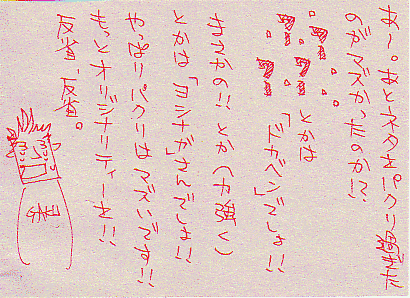 ネタをパクリ過ぎた
のがマズかったのか!?
とかは「ドカベン」でしょ!!
とか(力強く)
とかは「ヨシナガ」さんでしょ!!
やっぱりパクリはマズいです!!
もっとオリジナリティーを!!
反省、反省。